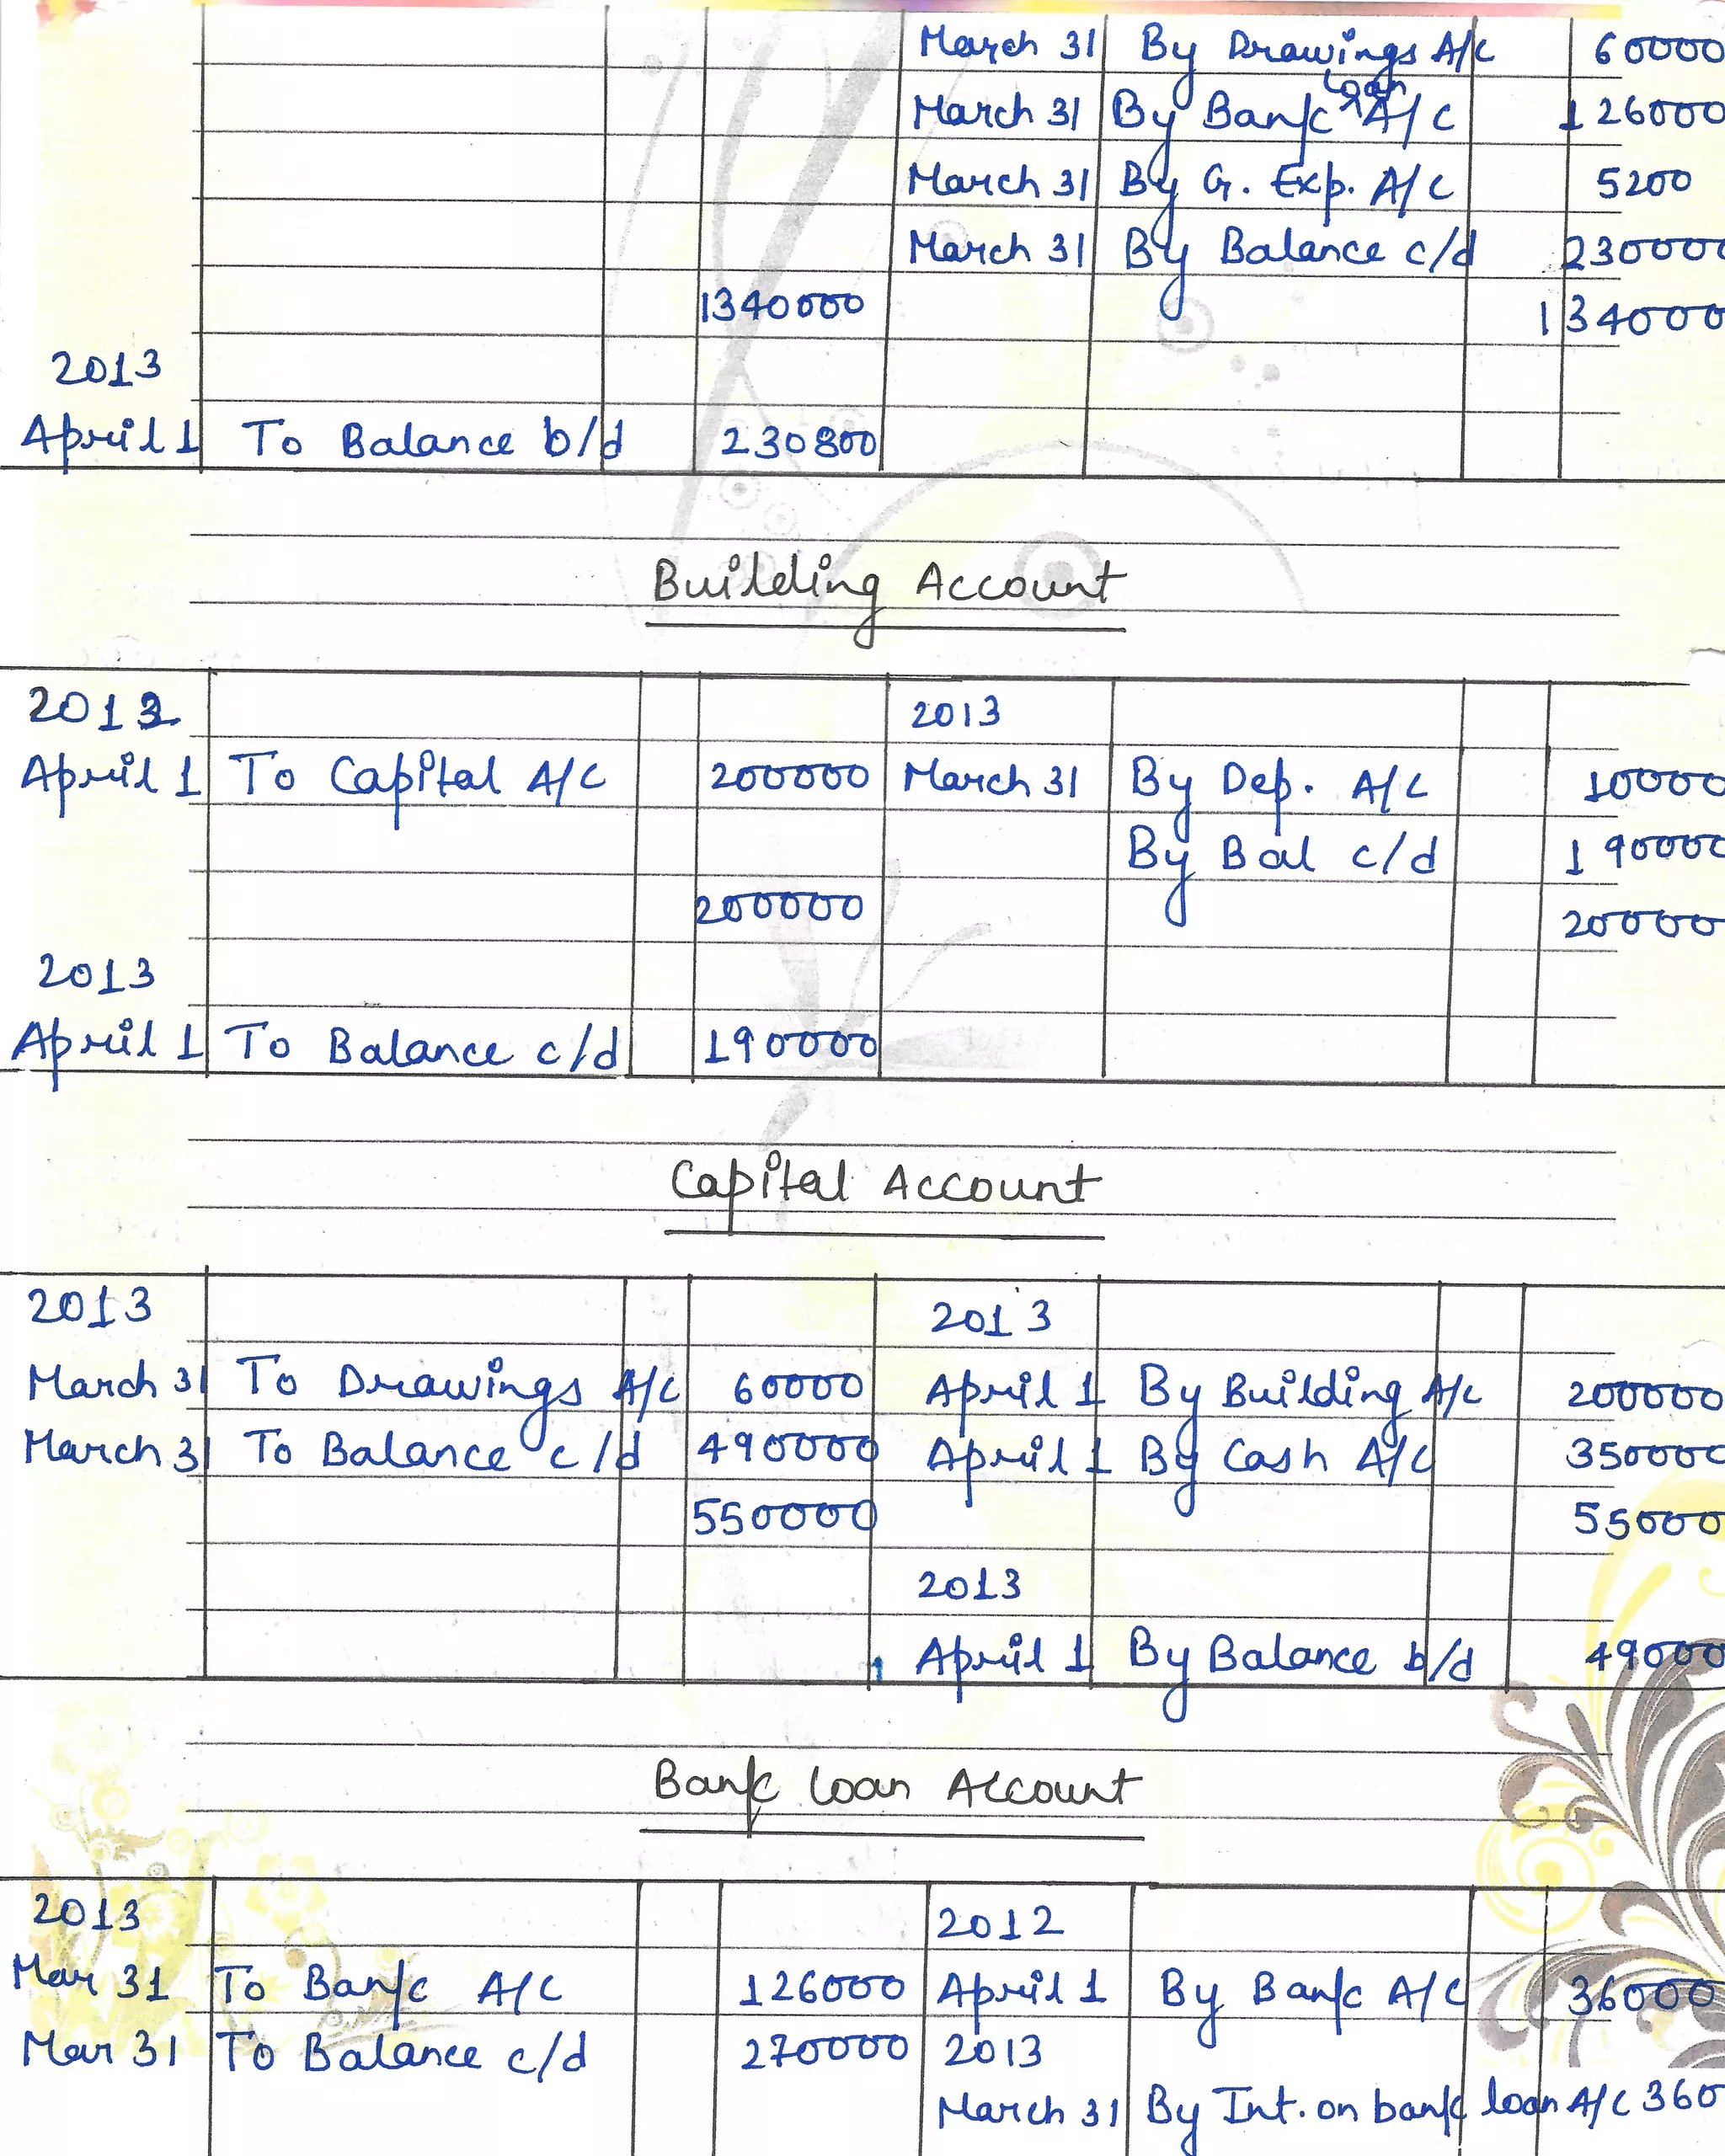 March 31 By Drawings A/c 60000
March 31 By Bank loan A/c 126000
March 31 By G. Exp. A/c 5200
March 31 By Balance c/d
1340000
2013
April 1 To Balance b/d 230800
Building Account
2012 2013
April 1 To Capital A/c 200000 March 31 By Dep. A/c 10000
By Bal c/d 190000
200000
2013
April 1 To Balance c/d 190000
Capital Account
2013 2013
March 31 To Drawings A/c 60000 April 1 By Building A/c 200000
March 31 To Balance c/d 490000 April 1 By Cash A/c 350000
550000
2013
April 1 By Balance b/d
Bank loan Account
2013 2012
Mar 31 To Bank A/c 126000 April 1 By Bank A/c
Mar 31 To Balance c/d 270000 2013
March 31 By Int. on bank loan A/c